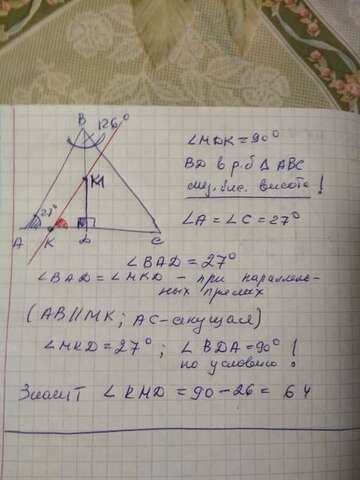 B
126°
27°
M
A
K
D
C
∠MDK = 90°
BD в р.б Δ ABC
высота!
∠A = ∠C = 27°
∠BAD = 27°
∠BAD = ∠MKD - при параллель-
ных прямых
(AB || MK; AC - секущая)
∠MKD = 27°; ∠BDA = 90° !
по условию
Значит ∠KMD = 90 - 26 = 64